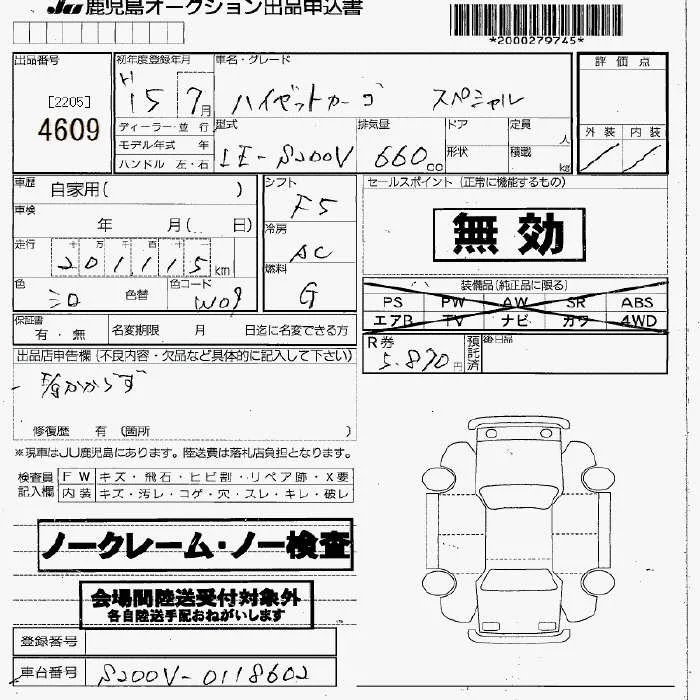 JU 鹿児島オークション出品申込書
*2000279745*
出品番号
[2205]
4609
初年度登録年月
H15 7月
車名・グレード
ハイゼットカーゴ スペシャル
ディーラー・並 行
モデル年式 年
ハンドル 左・右
型式
LE-S200V
排気量
660cc
ドア
形状
定員 人
積載 kg
評 価 点
外 装 内 装
車歴 自家用( )
車検 年 月( 日)
走行 十 万 千 百 十 一
201115km
色
シロ 色替
色コード
W09
シフト
F5
冷房
AC
燃料
G
セールスポイント (正常に機能するもの)
無 効
装備品(純正品に限る)
PS PW AW SR ABS
エアB TV ナビ カワ 4WD
保証書
有 ・ 無
名変期限 月 日迄に名変できる方
R券
5.870円
預託済
後日品
出品店申告欄 (不良内容・欠品など具体的に記入して下さい)
かからず
修復歴 有 (箇所 )
※現車はJU鹿児島にあります。陸送費は落札店負担となります。
検査員記入欄
FW キズ・飛石・ヒビ割・リペア跡・X要
内装 キズ・汚レ・コゲ・穴・スレ・キレ・破レ
ノークレーム・ノー検査
会場間陸送受付対象外
各自陸送手配おねがいします
登録番号
車台番号 S200V-0118602